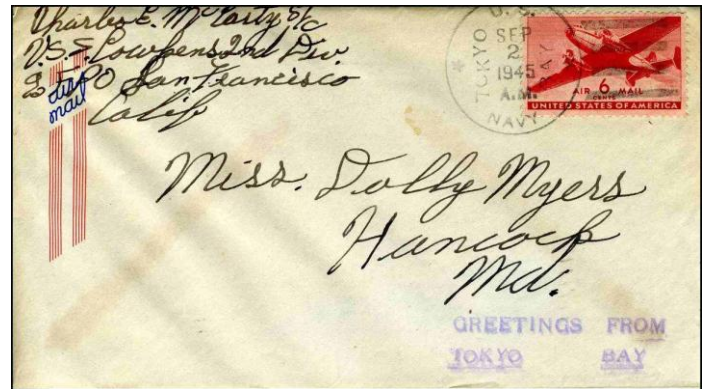 Charles E. McCarty S/c
U.S.S. Cowpens 2nd Div.
℅ F.P.O San Francisco
Calif
air
mail
U.S.
SEP
2
1945
A.M.
NAVY
TOKYO BAY
AIR 6 MAIL
CENTS
UNITED STATES OF AMERICA
Miss. Dolly Myers
Hancock
Md.
GREETINGS FROM
TOKYO BAY